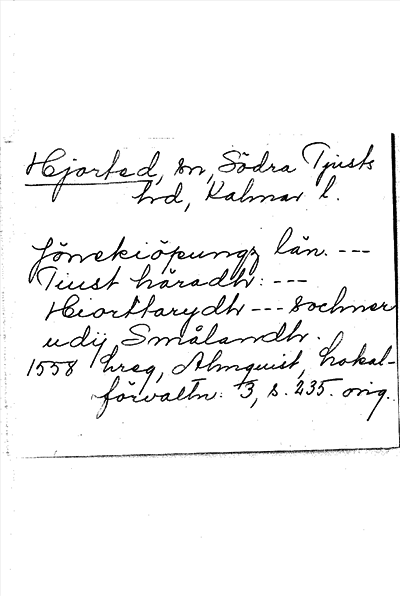 Hjorted, sn, Södra Tjusts
hd, Kalmar l.
Jönekiöpungz län. ---
Tiust häradh: ---
Hiorttarydh --- sochner
udij Smålandh.
1558 hreg, Almquist, Lokal-
förvaltn. 3, s. 235. orig.